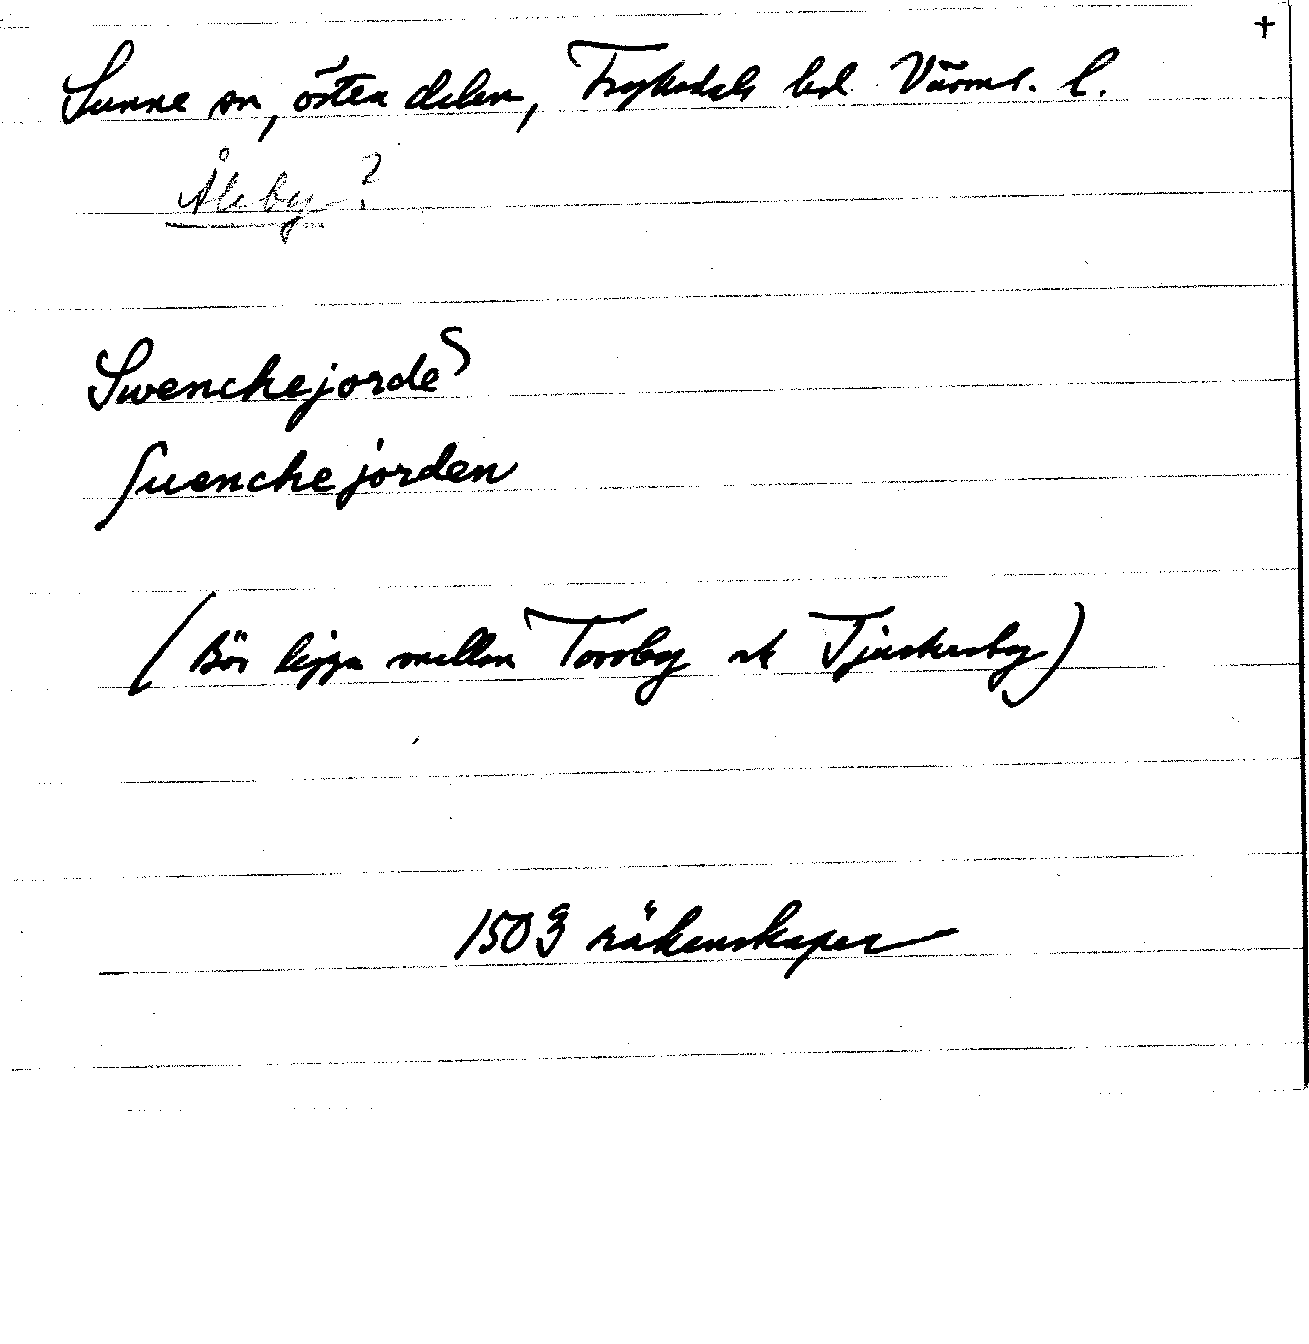 †
Sunne sn, östra delen, Fryksdals hd Värml. l.
Åleby?
Swenchejorde
Suenchejorden
(Bör ligga mellan Torsby och Tjuskersby)
1503 räkenskaper